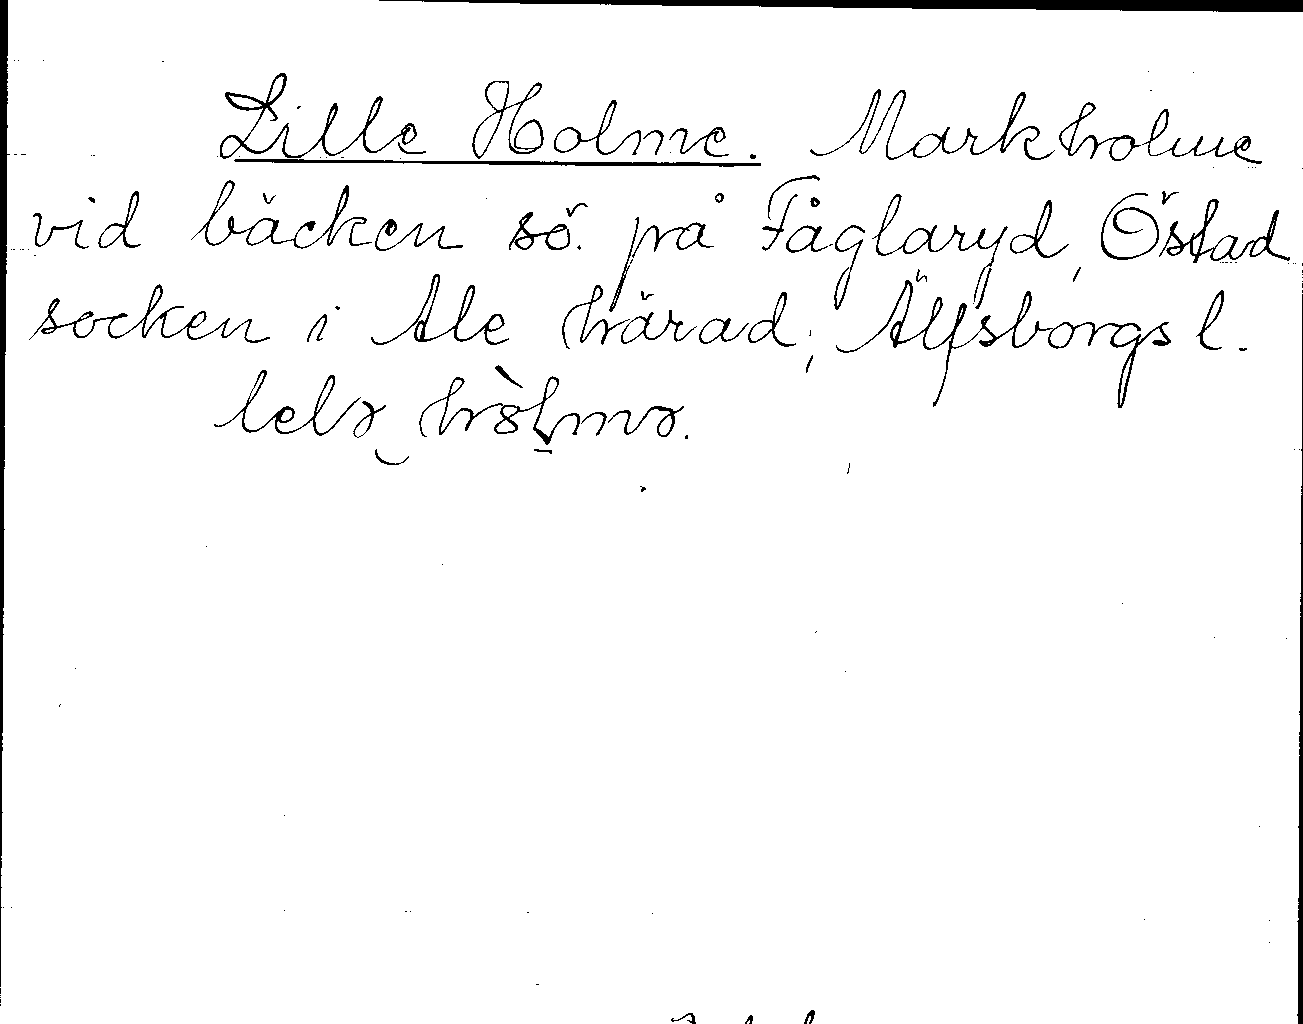 Lille Holme. Markholme
vid bäcken sö. på Fåglaryd, Östad
socken i Ale härad, Älfsborgs l.